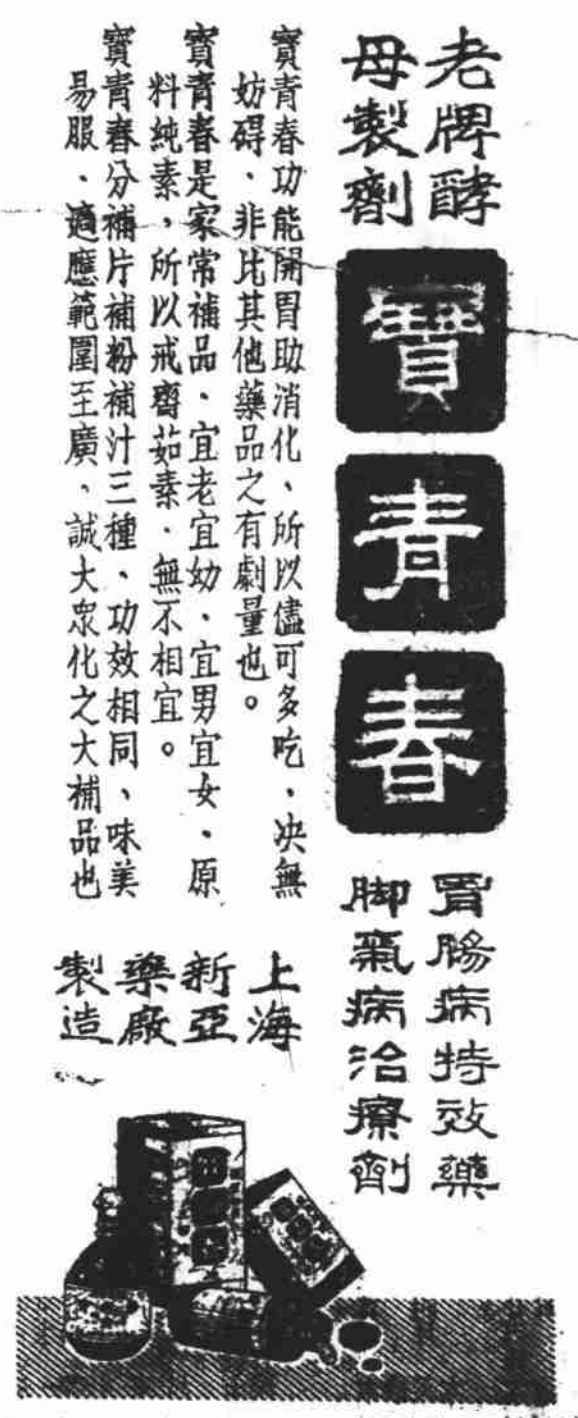 老牌酵
母製劑
寶青春
胃腸病特效藥
脚氣病治療劑
寶青春功能開胃助消化、所以儘可多吃、决無
妨碍、非比其他藥品之有劇量也。
寶青春是家常補品、宜老宜幼、宜男宜女、原
料純素，所以戒齋茹素、無不相宜。
寶青春分補片補粉補汁三種、功效相同、味美
易服、適應範圍至廣、誠大衆化之大補品也
上海
新亞
藥廠
製造